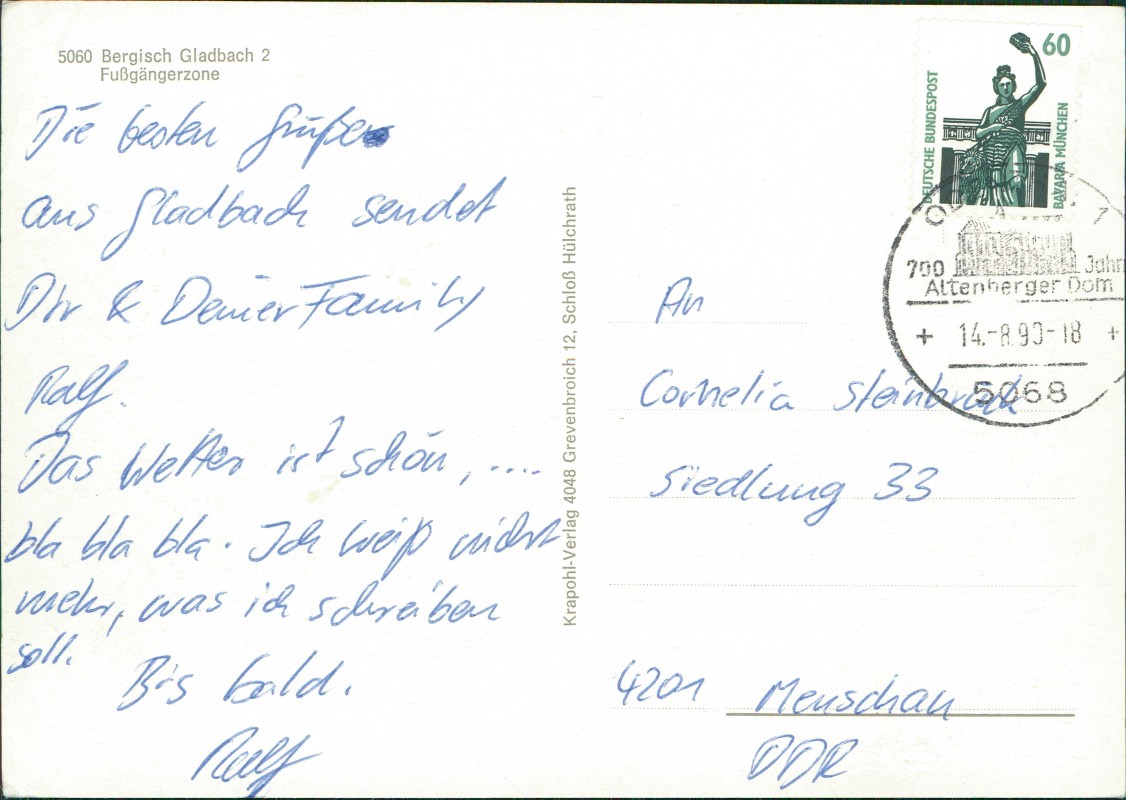 5060 Bergisch Gladbach 2
Fußgängerzone
Die besten Grüße
aus Gladbach sendet
Dir & Deiner Family
Ralf.
Das Wetter ist schön, ....
bla bla bla. Ich weiß nicht
mehr, was ich schreiben
soll.
Bis bald.
Ralf
Krapohl-Verlag 4048 Grevenbroich 12, Schloß Hülchrath
60
DEUTSCHE BUNDESPOST
BAVARIA MÜNCHEN
1
700 Jahr
Altenberger Dom
+ 14.-8.90-18 +
5068
An
Cornelia Steinbrück
Siedlung 33
4201 Menschau
DDR